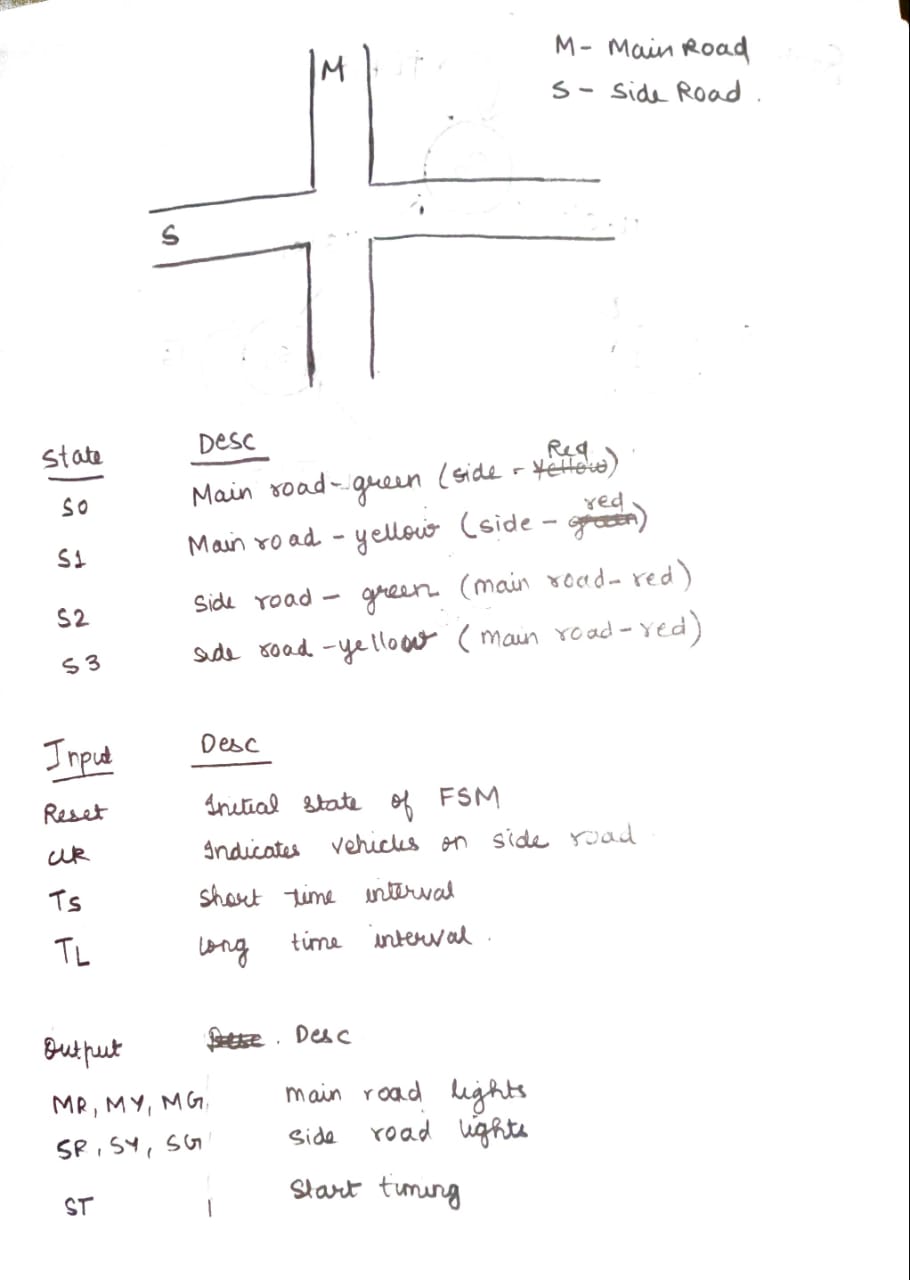 M- Main Road
S - Side Road .
M
S
State Desc
S0 Main road-green (side - Red yellow)
S1 Main road - yellow (side - red green)
S2 Side road - green (main road- red)
S3 side road -yellow (main road-red)
Input Desc
Reset Initial state of FSM
Indicates vehicles on side road
Ts Short time interval
TL long time interval .
Output . Desc
MR, MY, MG main road lights
SR, SY, SG side road lights
ST Start timing